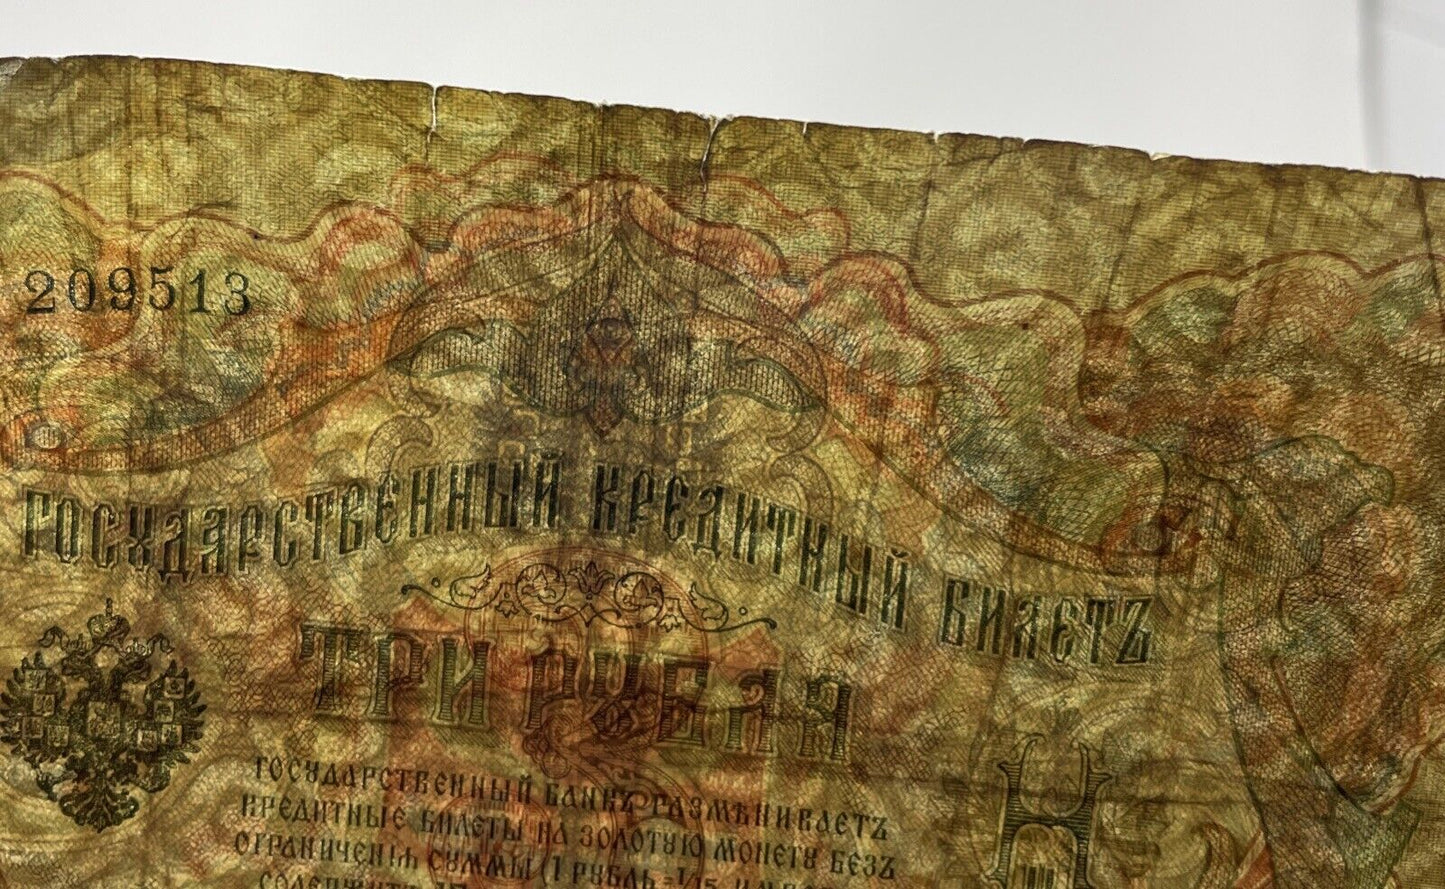 209513
ГОСУДАРСТВЕННЫЙ КРЕДИТНЫЙ БИЛЕТЪ
ТРИ РУБЛЯ
ГОСУДАРСТВЕННЫЙ БАНКЪ РАЗМѢНИВАЕТЪ
КРЕДИТНЫЕ БИЛЕТЫ НА ЗОЛОТУЮ МОНЕТУ БЕЗЪ
ОГРАНИЧЕНІЯ СУММЫ (1 РУБЛЬ = 1/15